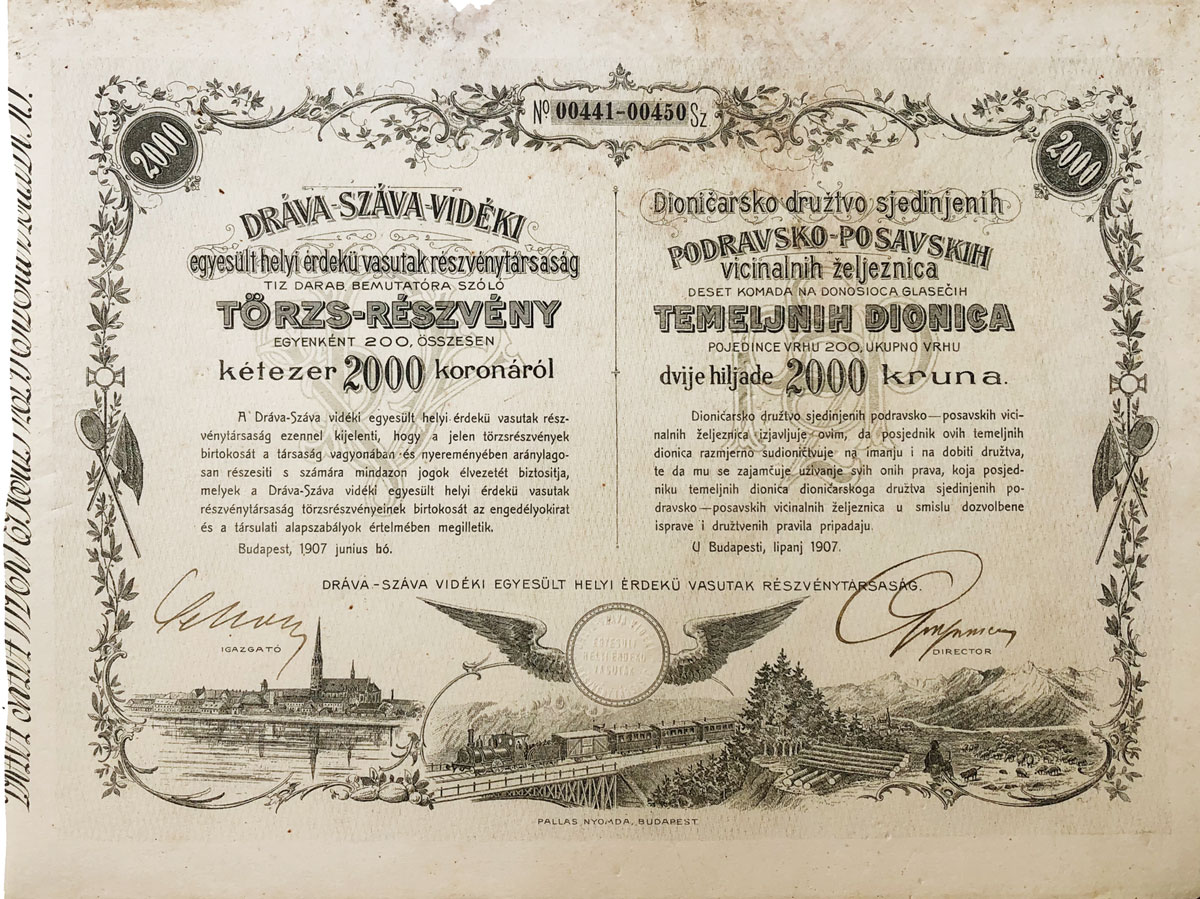 No 00441-00450 Sz
2000
2000
DRÁVA-SZÁVA-VIDÉKI
egyesült helyi érdekü vasutak részvénytársaság
TIZ DARAB BEMUTATÓRA SZÓLÓ
TÖRZS-RÉSZVÉNY
EGYENKÉNT 200, ÖSSZESEN
kétezer 2000 koronáról
A Dráva-Száva vidéki egyesült helyi érdekü vasutak rész-
vénytársaság ezennel kijelenti, hogy a jelen törzsrészvények
birtokosát a társaság vagyonában és nyereményében aránylago-
san részesiti s számára mindazon jogok élvezetét biztositja,
melyek a Dráva-Száva vidéki egyesült helyi érdekü vasutak
részvénytársaság törzsrészvényeinek birtokosát az engedélyokirat
és a társulati alapszabályok értelmében megilletik.
Budapest, 1907 junius hó.
Dioničarsko družtvo sjedinjenih
PODRAVSKO-POSAVSKIH
vicinalnih željeznica
DESET KOMADA NA DONOSIOCA GLASEČIH
TEMELJNIH DIONICA
POJEDINCE VRHU 200, UKUPNO VRHU
dvije hiljade 2000 kruna.
Dioničarsko družtvo sjedinjenih podravsko—posavskih vici-
nalnih željeznica izjavljuje ovim, da posjednik ovih temeljnih
dionica razmjerno sudioničtvuje na imanju i na dobiti družtva,
te da mu se zajamčuje uživanje svih onih prava, koja posjed-
niku temeljnih dionica dioničarskoga družtva sjedinjenih po-
dravsko—posavskih vicinalnih željeznica u smislu dozvolbene
isprave i družtvenih pravila pripadaju.
U Budapesti, lipanj 1907.
DRÁVA-SZÁVA VIDÉKI EGYESÜLT HELYI ÉRDEKÜ VASUTAK RÉSZVÉNYTÁRSASÁG.
IGAZGATÓ
DIRECTOR
PALLAS NYOMDA, BUDAPEST.